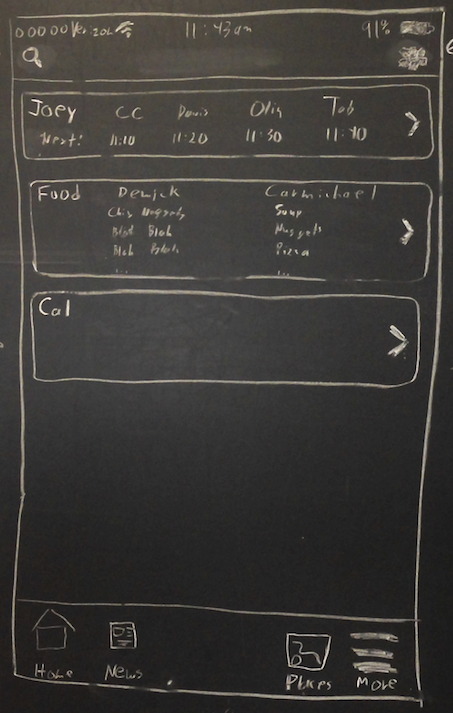 00000 Ver 11:43am 91%
Joey CC Davis Olin Tab
Next: 11:10 11:20 11:30 11:40
Food Denick Carmichael
Chix Nuggets Soup
Blah Blah Nuggets
Blah Blah Pizza
... ...
Cal
Home News Places More